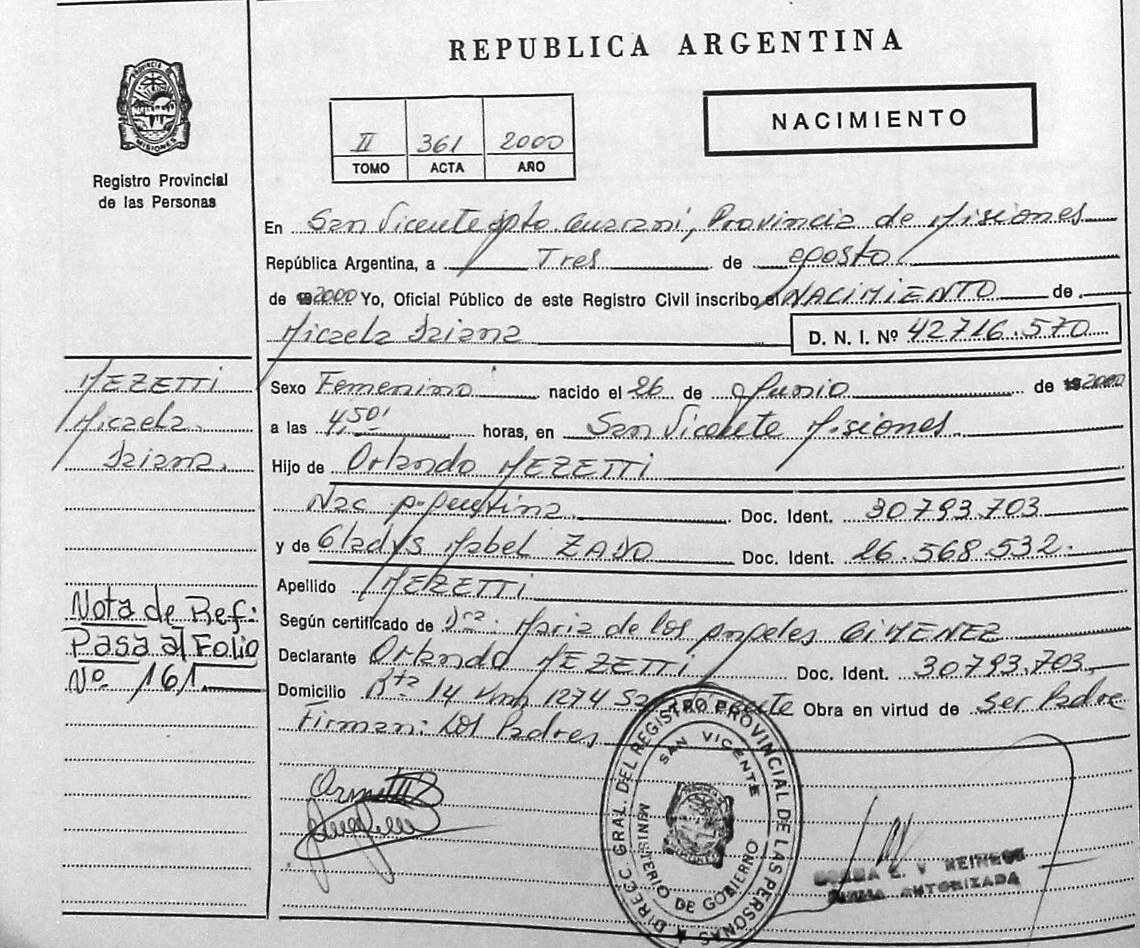 REPUBLICA ARGENTINA
PROVINCIA DE MISIONES
Registro Provincial
de las Personas
II 361 2000
TOMO ACTA AÑO
NACIMIENTO
En San Vicente Dpto. Guarani, Provincia de Misiones
República Argentina, a Tres de agosto
de 2000 Yo, Oficial Público de este Registro Civil inscribo el NACIMIENTO de
Micaela Daiana D. N. I. Nº 42716.570
MEZETTI
Micaela
Daiana.
Sexo Femenino nacido el 26 de Junio de 2000
a las 4,50' horas, en San Vicente Misiones.
Hijo de Orlando MEZETTI
Nac Argentina. Doc. Ident. 30793.703
y de Gladys Mabel Doc. Ident. 26.568.532.
Apellido MEZETTI
Nota de Ref:
Pasa al Folio
Nº 161
Según certificado de Dra. Maria de los Angeles GIMENEZ
Declarante Orlando MEZETTI Doc. Ident. 30793.703
Domicilio Rta 14 Km 1274 San Vicente Obra en virtud de ser Padre
Firman: Los Padres
DIRECC. GRAL. DEL REGISTRO PROVINCIAL DE LAS PERSONAS
SAN VICENTE
MINISTERIO DE GOBIERNO
AUTORIZADA